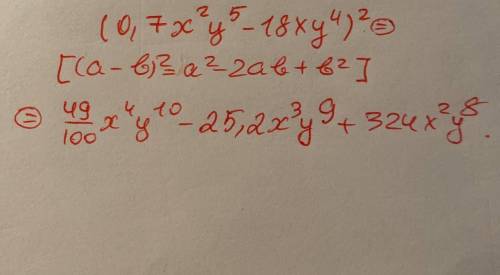 (0,7x²y⁵-18xy⁴)²⊜
[(a-b)²=a²-2ab+b²]
⊜ 49/100 x⁴y¹⁰-25,2x³y⁹+324x²y⁸.